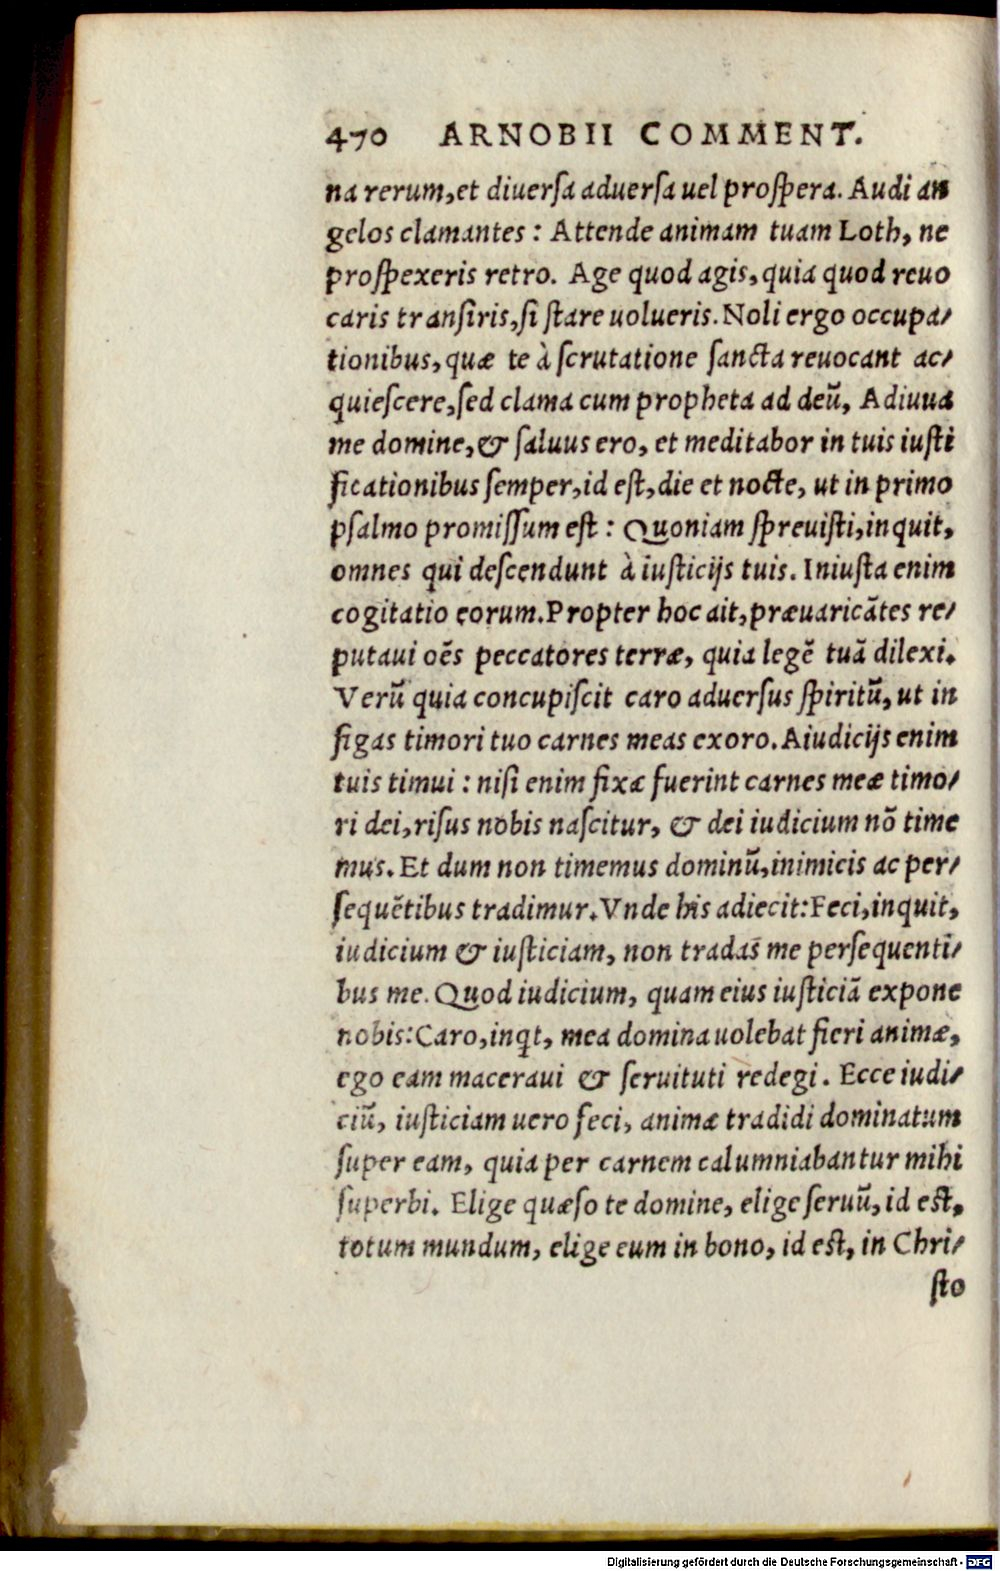 470 ARNOBII COMMENT.
na rerum, et diuersa aduersa uel prospera. Audi an
gelos clamantes : Attende animam tuam Loth, ne
prospexeris retro. Age quod agis, quia quod reuo
caris transiris, si stare uolueris. Noli ergo occupa/
tionibus, quæ te à scrutatione sancta reuocant ac/
quiescere, sed clama cum propheta ad deũ, Adiuua
me domine, & saluus ero, et meditabor in tuis iusti
ficationibus semper, id est, die et nocte, ut in primo
psalmo promissum est : Quoniam spreuisti, inquit,
omnes qui descendunt à iusticijs tuis. Iniusta enim
cogitatio eorum. Propter hoc ait, præuaricãtes re/
putaui oẽs peccatores terræ, quia legẽ tuã dilexi.
Verũ quia concupiscit caro aduersus spiritũ, ut in
figas timori tuo carnes meas exoro. A iudicijs enim
tuis timui : nisi enim fixæ fuerint carnes meæ timo/
ri dei, risus nobis nascitur, & dei iudicium nõ time
mus. Et dum non timemus dominũ, inimicis ac per/
sequẽtibus tradimur. Vnde his adiecit: Feci, inquit,
iudicium & iusticiam, non tradas me persequenti/
bus me. Quod iudicium, quam eius iusticiã expone
nobis: Caro, inqt, mea domina uolebat fieri animæ,
ego eam maceraui & seruituti redegi. Ecce iudi/
ciũ, iusticiam uero feci, animæ tradidi dominatum
super eam, quia per carnem calumniabantur mihi
superbi. Elige quæso te domine, elige seruũ, id est,
totum mundum, elige eum in bono, id est, in Chri/
sto
Digitalisierung gefördert durch die Deutsche Forschungsgemeinschaft - DFG